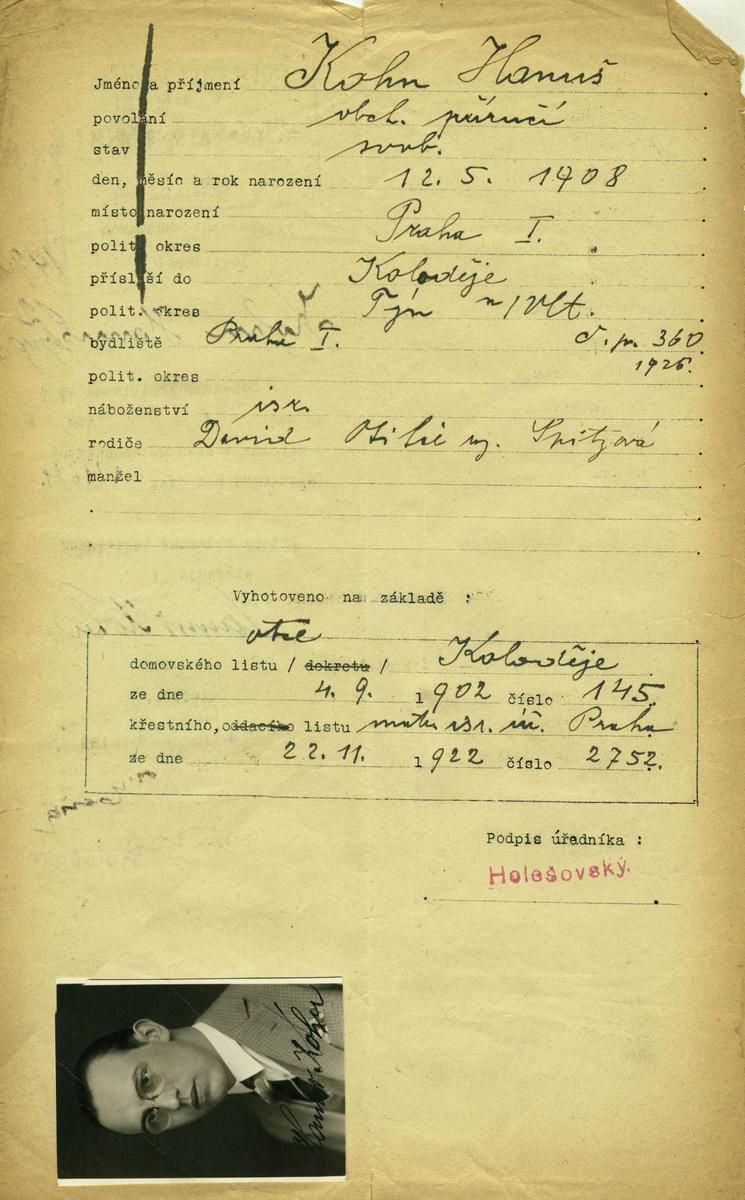 Jméno a příjmení Kohn Hanuš
povolání obch. příručí
stav svob.
den, měsíc a rok narození 12. 5. 1908
místo narození Praha I.
polit. okres
přísluší do Koloděje
polit. okres Týn n/Vlt.
bydliště Praha I. č. p. 360
1926.
polit. okres
náboženství isr.
rodiče David Otilie Spitzová
manžel
Vyhotoveno na základě :
otce
domovského listu / dekretu / Koloděje
ze dne 4. 9. 1902 číslo 145.
křestního, oddacího listu matr. isr. Praha
ze dne 22. 11. 1922 číslo 2752.
Podpis úředníka :
Holešovský.